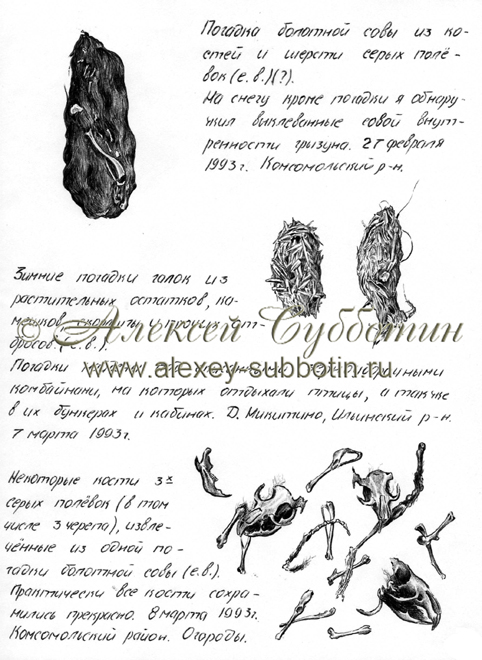 Погадка болотной совы из ко-
стей и шерсти серых полё-
вок (е.в.)(?).
На снегу кроме погадки я обнару-
жил выклеванные совой внут-
ренности грызуна. 27 февраля
1993г. Комсомольский р-н.
Зимние погадки галок из
растительных остатков, ка-
мешков, скорлупы и прочих от-
бросов (е.в.).
© Алексей Субботин
www.alexey-subbotin.ru
Погадки
комбайнами, на которых отдыхали птицы, а также
в их бункерах и кабинах. Д. Микитино, Ильинский р-н.
7 марта 1993г.
Некоторые кости 3х
серых полёвок (в том
числе 3 черепа), извле-
чённые из одной по-
гадки болотной совы (е.в.).
Практически все кости сохра-
нились прекрасно. 8 марта 1993г.
Комсомольский район. Огороды.